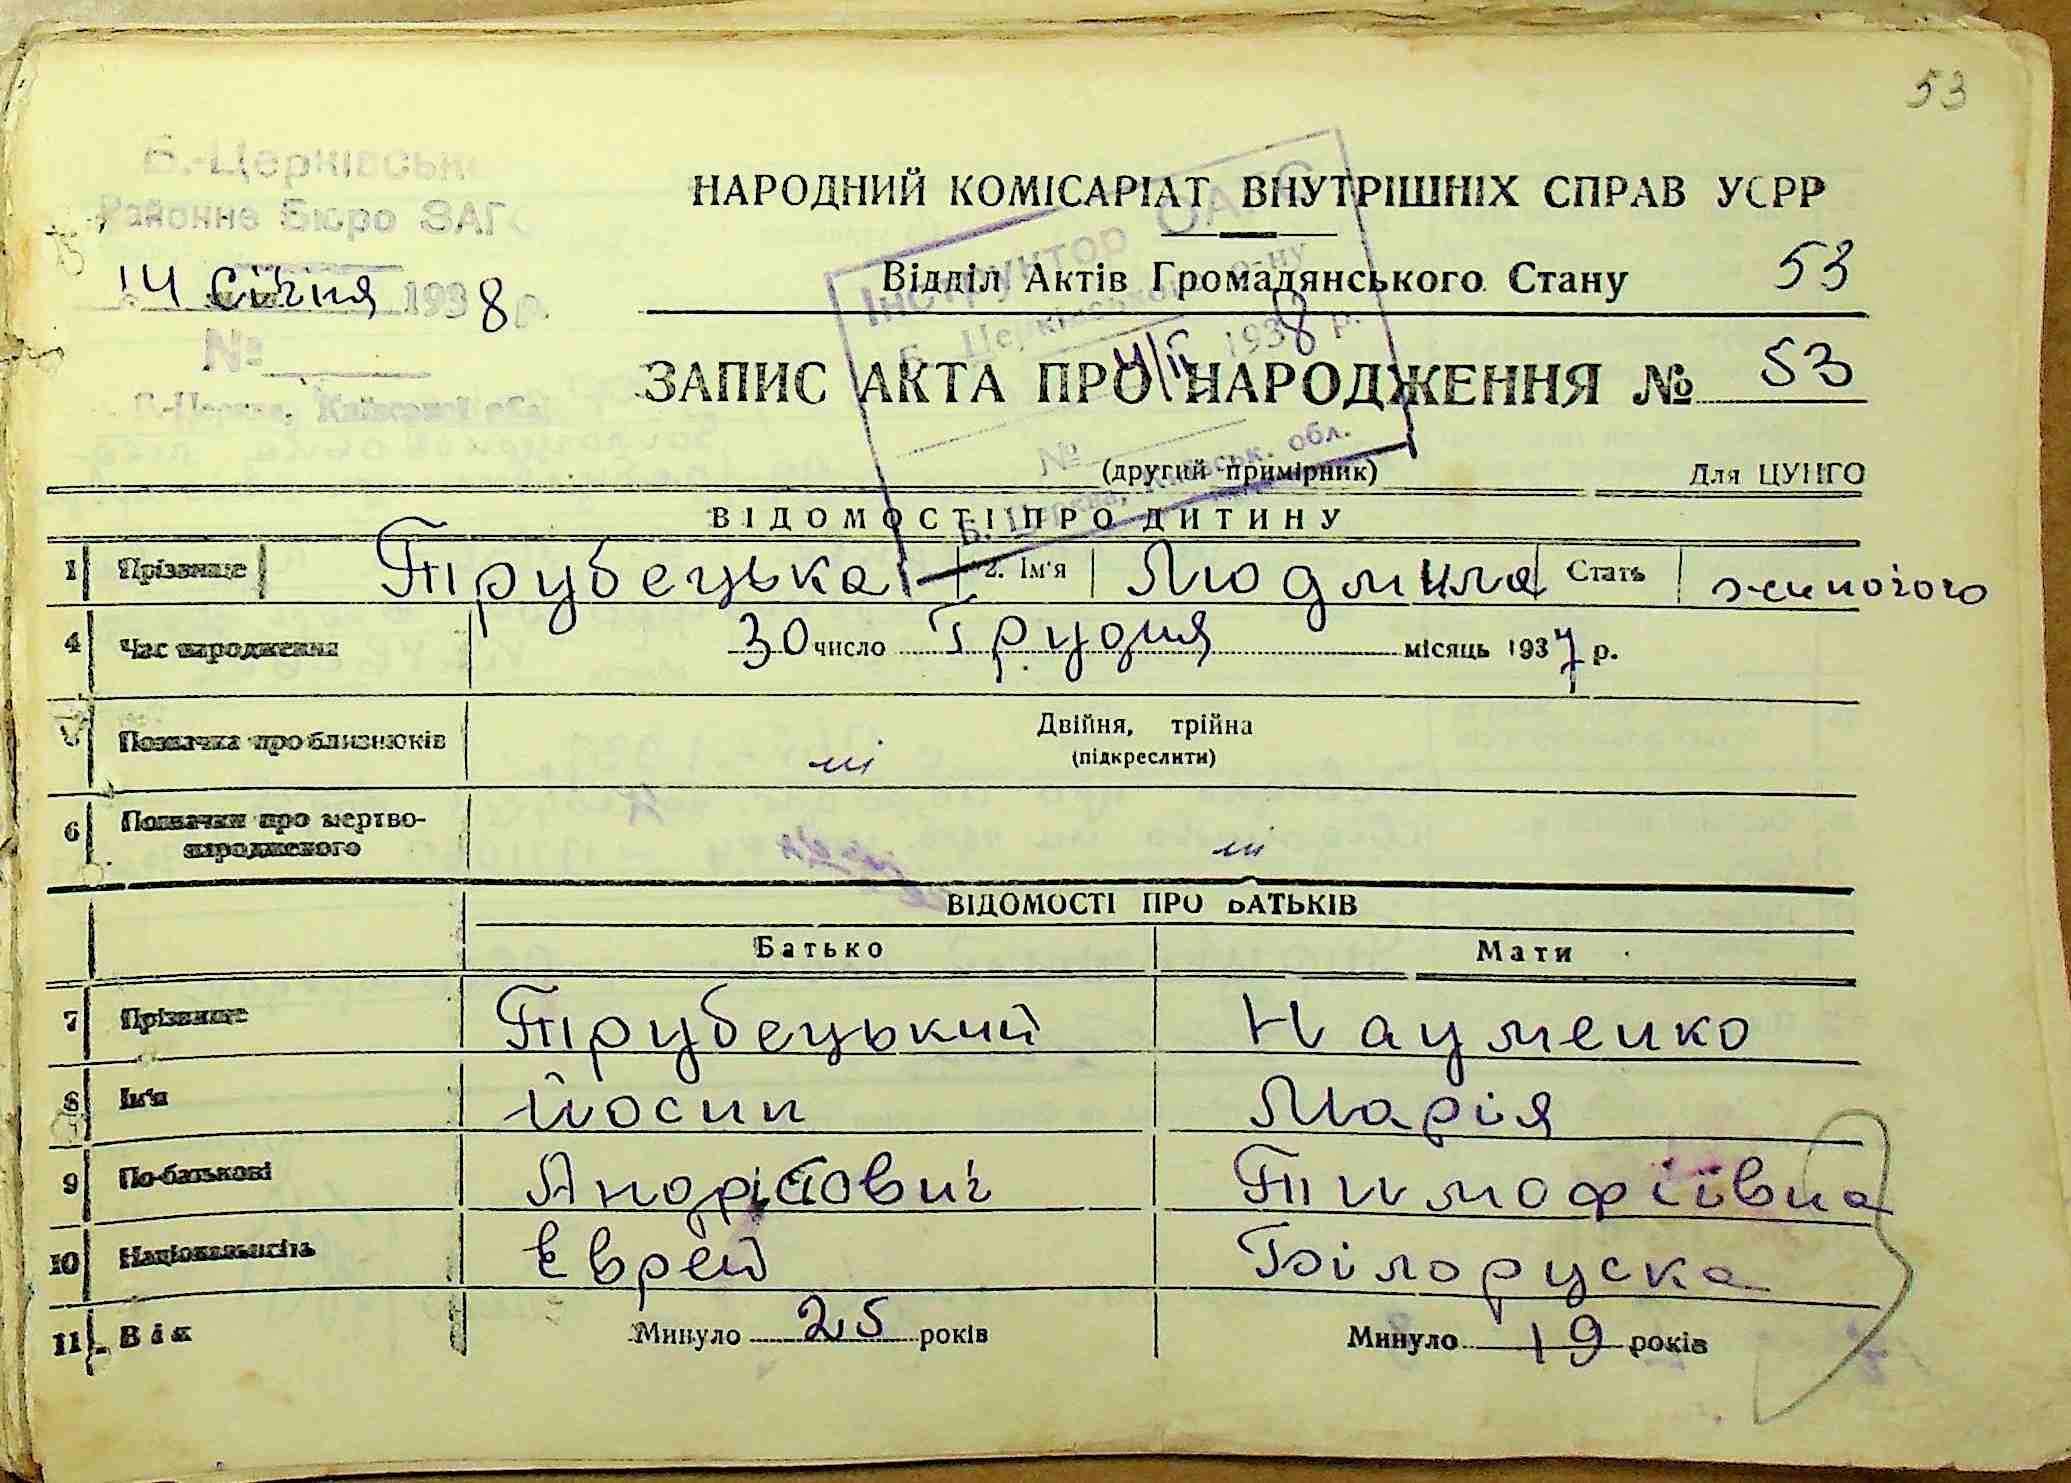 53
Б.-Церківське
Районне Бюро ЗАГС
14 Січня 1938 р.
№
Б.-Церква, Київської обл.
НАРОДНИЙ КОМІСАРІАТ ВНУТРІШНІХ СПРАВ УСРР
Відділ Актів Громадянського Стану 53
Інструктор ОАГС
Б. Церківського р-ну
4/II 1938 р.
№
Б. Церква, Київськ. обл.
ЗАПИС АКТА ПРО НАРОДЖЕННЯ № 53
(другий примірник) Для ЦУНГО
ВІДОМОСТІ ПРО ДИТИНУ
1 Прізвище Трубецька 2. Ім'я Людмила Стать жиночого
4 Час народження 30 число Грудня місяць 1937 р.
5 Позначка про близнюків ні Двійня, трійна
(підкреслити)
6 Позначки про мертво-
народженого ні
ВІДОМОСТІ ПРО БАТЬКІВ
Батько Мати
7 Прізвище Трубецький Науменко
8 Ім'я Йосип Марія
9 По-батькові Андрійович Тимофіївна
10 Національність Єврей Білоруска
11 Вік Минуло 25 років Минуло 19 років